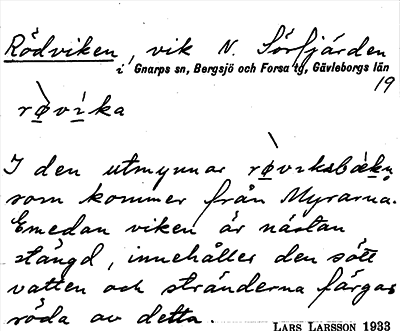 Rödviken, vik N. Sörfjärden
i Gnarps sn, Bergsjö och Forsa tg, Gävleborgs län
19
rø̀víka
I den utmynnar rø̀viksbækņ
som kommer från Myrarna.
Emedan viken är nästan
stängd, innehåller den sött
vatten och stränderna färgas
röda av detta.
LARS LARSSON 1933